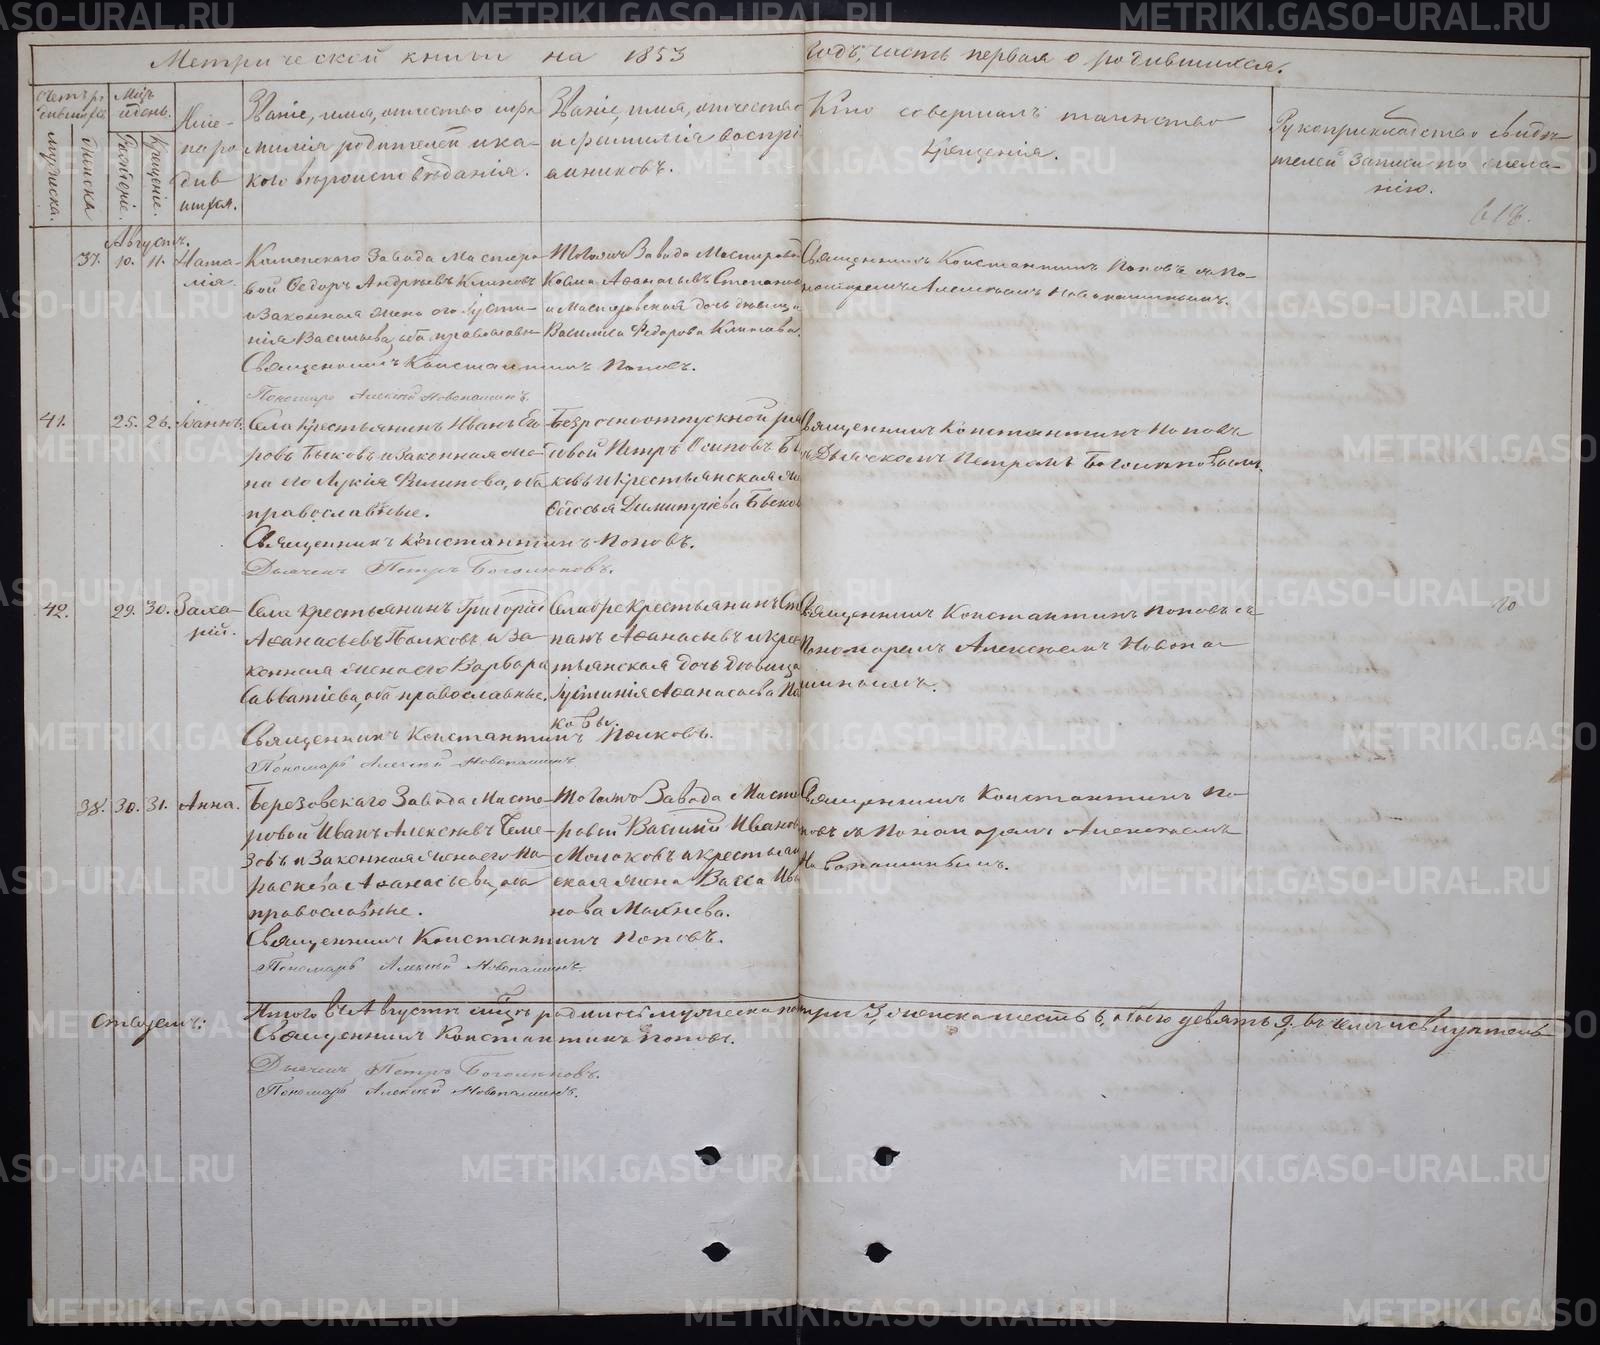 Метрической книги на 1853 годъ, часть первая о родившихся.
Счетъ родившихся
мужеска.
женска
Мѣсяцъ и день.
Рожденіе.
Крещеніе.
Имена родившихся.
Званіе, имя, отчество и фамилія родителей и какого вѣроисповѣданія.
Званіе, имя, отчество и фамилія воспріемниковъ.
Кто совершалъ таинство крещенія.
Рукоприкладство свидѣтелей записи по желанію.
618.
Августъ.
37. 10. 11. Наталія.
Каменскаго Завода Мастеровой Ѳедоръ Андреевъ Климовъ
и Законная жена его Іустинія Васильева, оба православные
Тогожъ Завода Мастеровой
Козма Аѳанасьевъ Степановъ
и Мастеровская дочь дѣвица
Василиса Ѳедорова Климова.
Священникъ Константинъ Поповъ съ Пономаремъ Алексѣемъ Новопашинымъ.
Священникъ Константинъ Поповъ.
Пономарь Алексѣй Новопашинъ.
41. 25. 26. Іоаннъ.
Села крестьянинъ Иванъ Егоровъ Быковъ и законная жена его Лукія Филипова, оба
православные.
Безсрочноотпускной рядовой Петръ Осиповъ Быковъ и крестьянская жена
Димитріева Быкова
Священникъ Константинъ Поповъ
съ Дьячкомъ Петромъ Боголѣповымъ.
Священникъ Константинъ Поповъ.
Дьячекъ Петръ Боголѣповъ.
42. 29. 30. Захарій.
Села крестьянинъ Григорій
Аѳанасьевъ Полковъ и законная жена его Варвара
Савватіева, оба православные.
Села крестьянинъ Степанъ Аѳанасьевъ и крестьянская дочь дѣвица
Іустинія Аѳанасьева Полковы.
Священникъ Константинъ Поповъ съ
Пономаремъ Алексѣемъ Новопашинымъ.
Священникъ Константинъ Полковъ.
Пономарь Алексѣй Новопашинъ
38. 30. 31. Анна.
Березовскаго Завода Мастеровой Иванъ Алексѣевъ
и Законная жена его Параскева Аѳанасьева, оба
православные.
Тогожъ Завода Мастеровой Василій Ивановъ
Молоковъ и крестьянская жена Васса Иванова Махнева.
Священникъ Константинъ Поповъ съ Пономаремъ Алексѣемъ
Новопашинымъ.
Священникъ Константинъ Поповъ.
Пономарь Алексѣй Новопашинъ.
Итого въ Августѣ мѣсяцѣ родилось мужеска пола три 3, женска шесть 6, обоего девять 9. въ чемъ и свидѣтельствуемъ:
Священникъ Константинъ Поповъ.
Дьячекъ Петръ Боголѣповъ.
Пономарь Алексѣй Новопашинъ.
METRIKI.GASO-URAL.RU